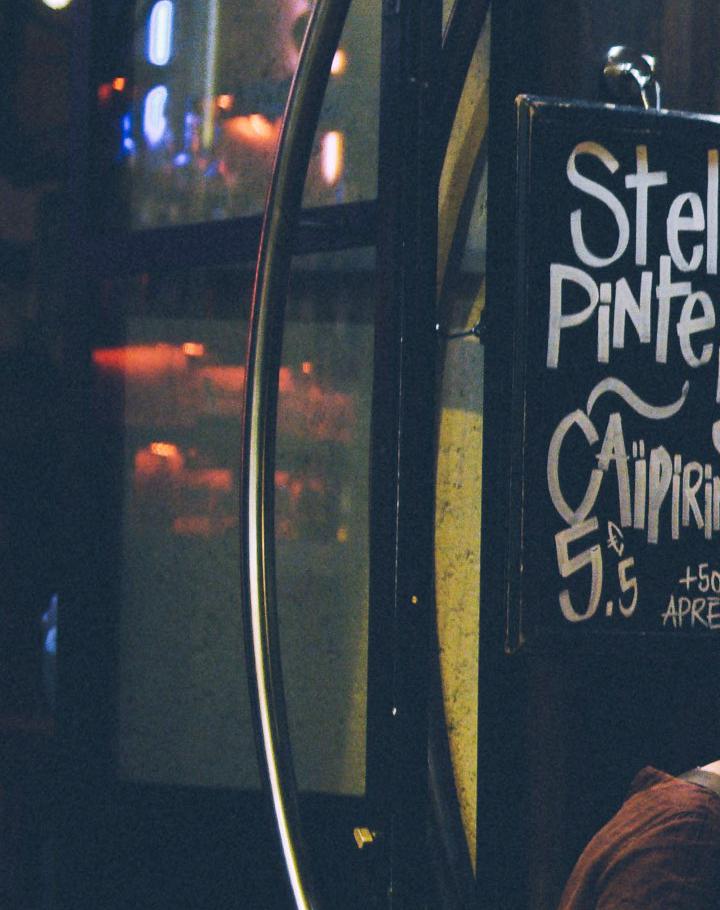 Stel
Pinte
Caïpirin
5.5€
+50
APRE